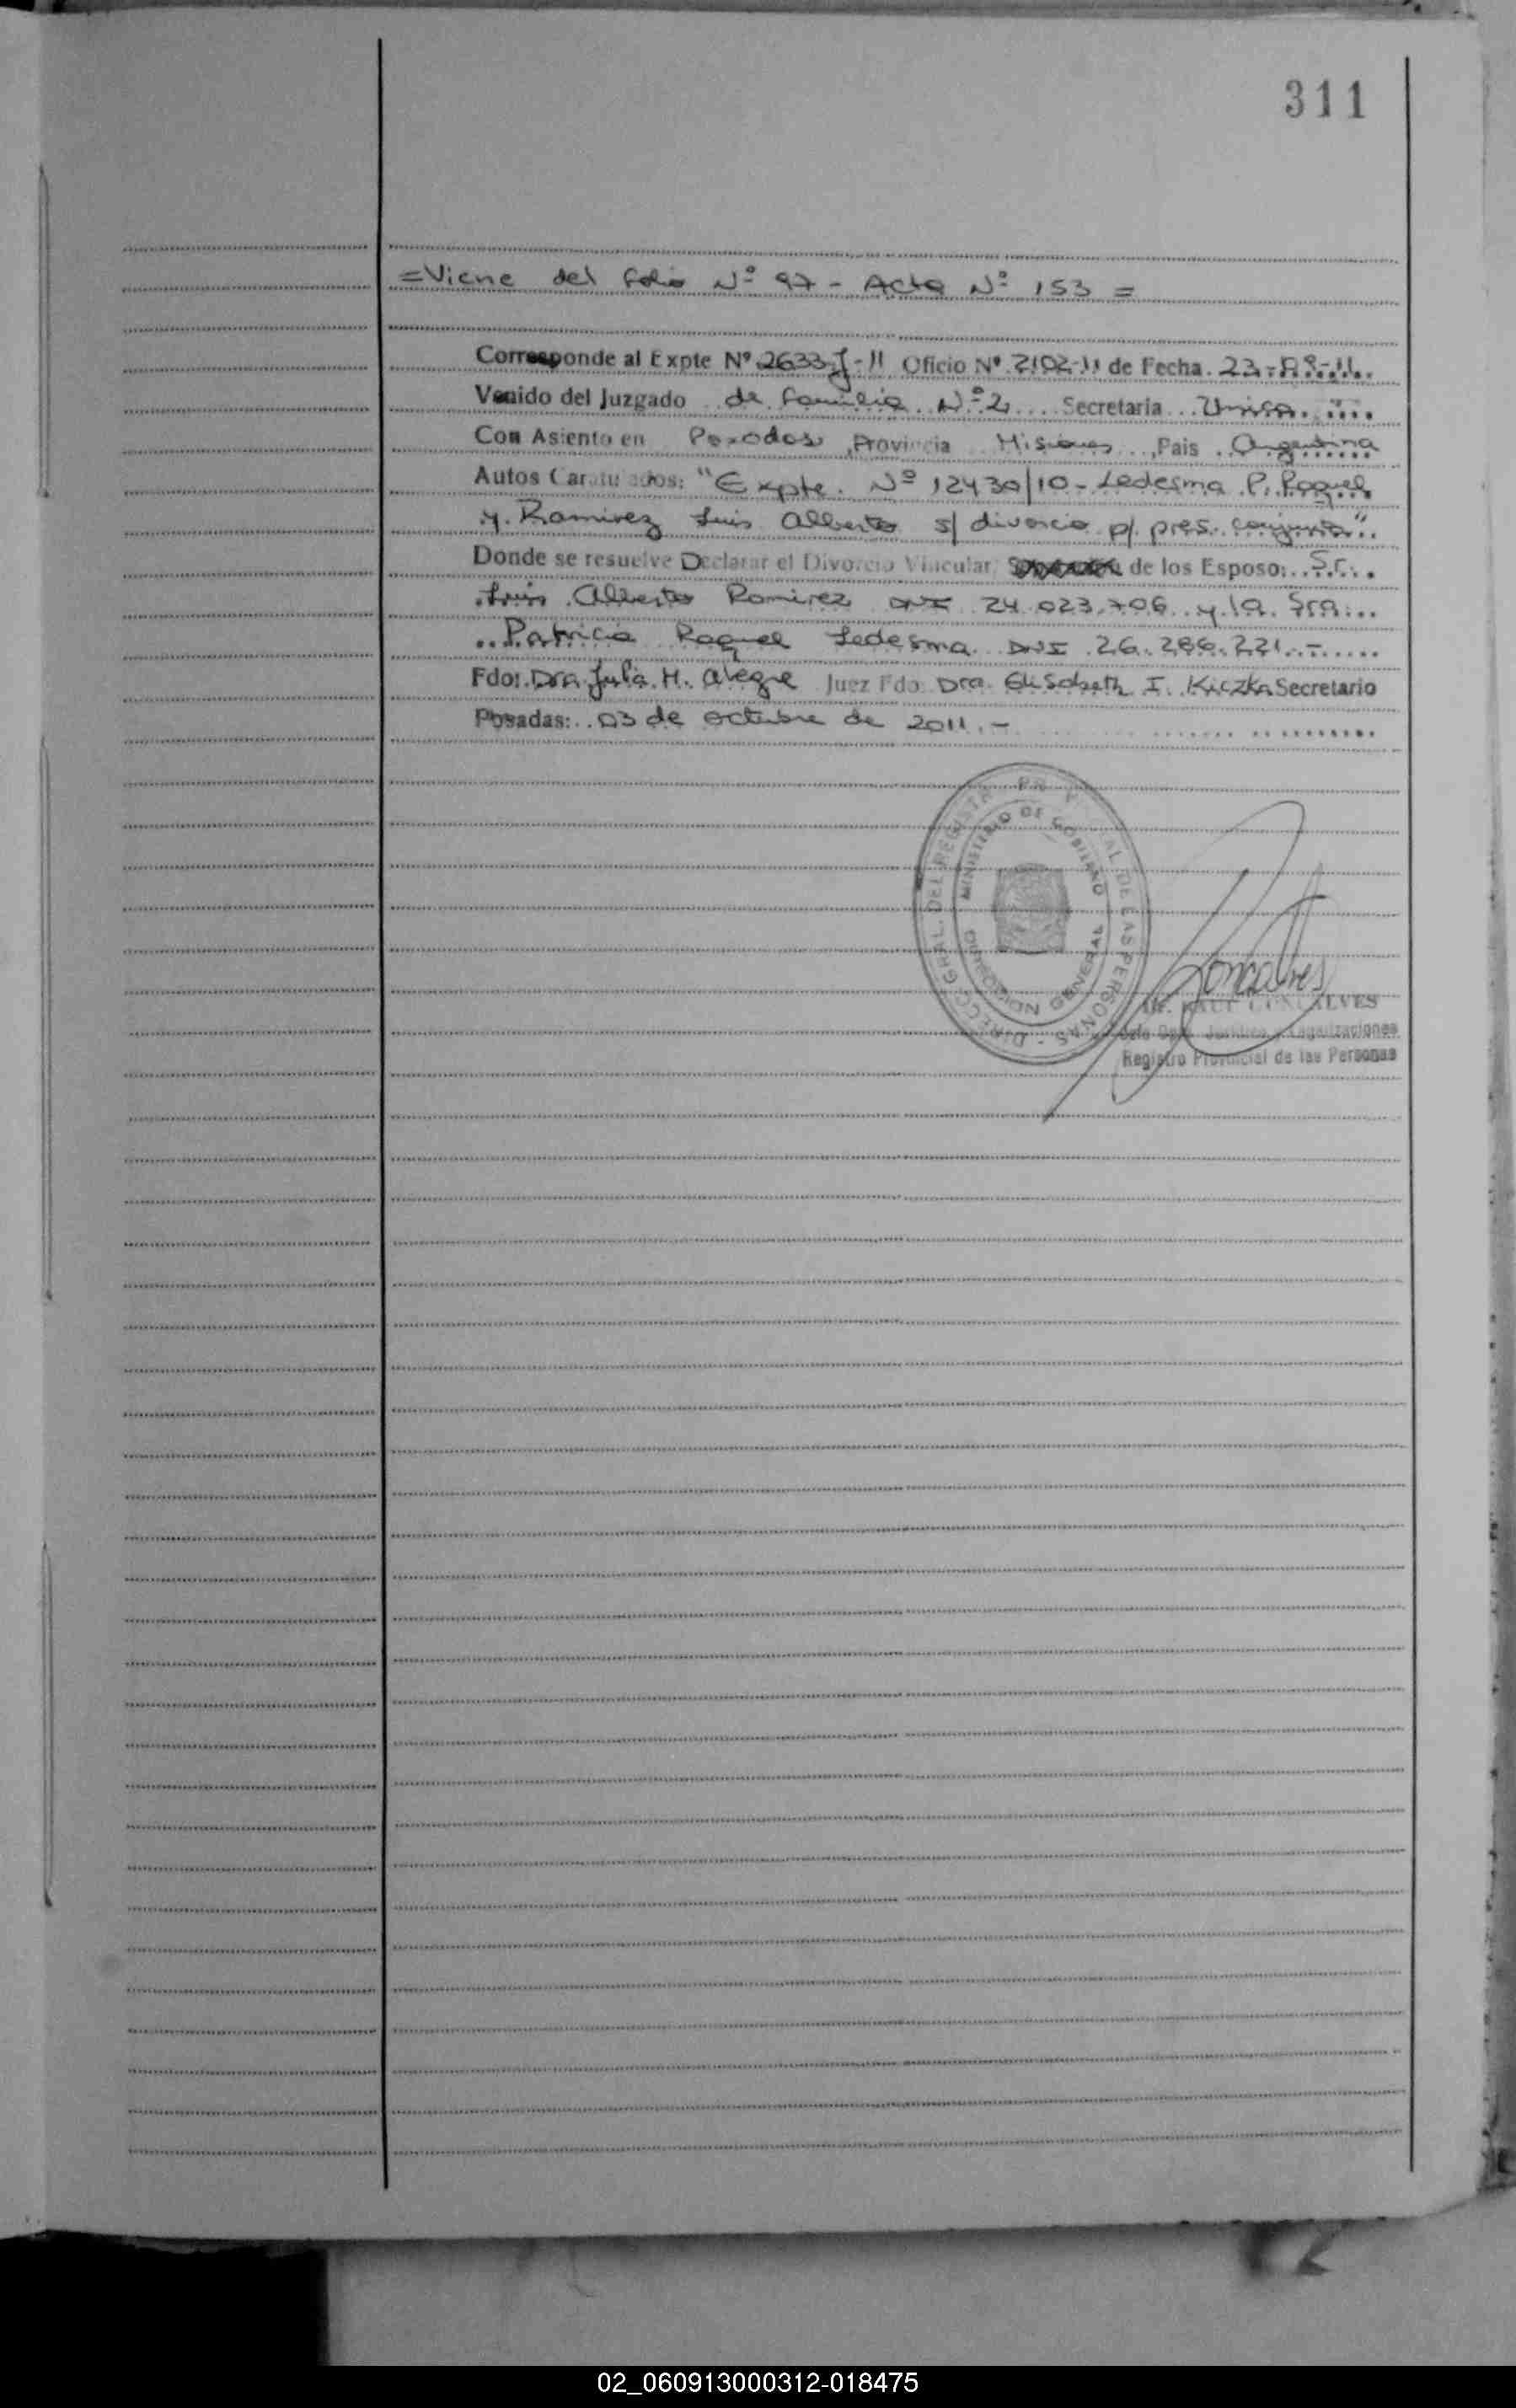 311
=Viene del folio Nº 97 - Acta Nº 153 =
Corresponde al Expte Nº 2633-J-11 Oficio Nº 2102-11 de Fecha. 23-
Venido del Juzgado de Familia Nº 2 Secretaria Unica
Con Asiento en Posadas, Provincia Misiones, Pais Argentina
Autos Caratulados: "Expte. Nº 12430/10 - Ledesma P. Raquel
y Ramirez Luis Alberto s/ divorcio p/ pres. conjunta"
Donde se resuelve Declarar el Divorcio Vincular, de los Esposo: Sr.
Luis Alberto Ramirez DNI 24.023.706 y la Sra.
Patricia Raquel Ledesma DNI 26. .221.-
Fdo: Dra Julia H. Alegre Juez Fdo: Dra. Elisabeth I. Kiczka Secretario
Posadas: 03 de octubre de 2011.-
DIRECC. GRAL. DEL REGISTRO PROVINCIAL DE LAS PERSONAS -
MINISTERIO DE GOBIERNO
DIRECCION GENERAL
Goncalves
GONCALVES
Legalizaciones
Registro Provincial de las Personas
02_060913000312-018475